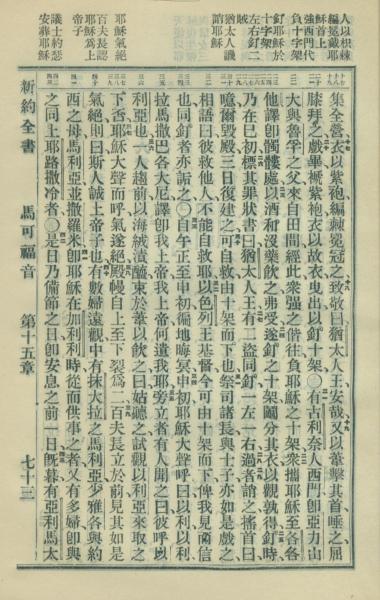 人以枳棘
編冕戴耶
穌首上
強西門代
負十字架
釘耶穌於
十字架
左右釘二
賊
猶太人譏
誚耶穌
耶穌氣絕
百夫長認
耶穌爲上
帝子
議士約瑟
安葬耶穌
集全營衣以紫袍編棘冕冠之致敬曰猶太人王安哉又以葦擊其首唾之屈
膝拜之戲畢褫紫袍衣以故衣曳出以釘十架〇有古利奈人西門卽亞力山
大與魯孚之父來自田間經此衆强之偕往負耶穌之十架衆攜耶穌至各各
他譯卽髑髏處以酒和沒藥飲之弗受遂釘之十架鬮分其衣以觀孰得釘時
乃在巳初標其罪狀書曰猶太人王有二盜同釘一左一右過者誚之搖首曰
噫爾毀殿三日復建之可自救由十架而下也祭司諸長與士子亦如是戲之
相語曰彼救他人不能自救耶以色列王基督今可由十架而下俾我見而信
也同釘者亦詬之〇自午正至申初徧地晦冥申初耶穌大聲呼曰以利以利
拉馬撒巴各大尼譯卽我上帝我上帝何遺我耶旁立者有人聞之曰彼呼以
利亞也一人趨前以海絨漬醯束於葦以飲之曰姑聽之試觀以利亞來取之
下否耶穌大聲而呼氣遂絕殿幔自上至下裂爲二百夫長立於前見其如是
氣絕則曰斯人誠上帝子也有數婦遠觀中有抹大拉之馬利亞少雅各與約
西之母馬利亞並撒羅米卽耶穌在加利利時從而供事之者又有多婦卽與
之同上耶路撒冷者〇是日乃備節之日卽安息之前一日旣暮有亞利馬太
新約全書 馬可福音 第十五章 七十三